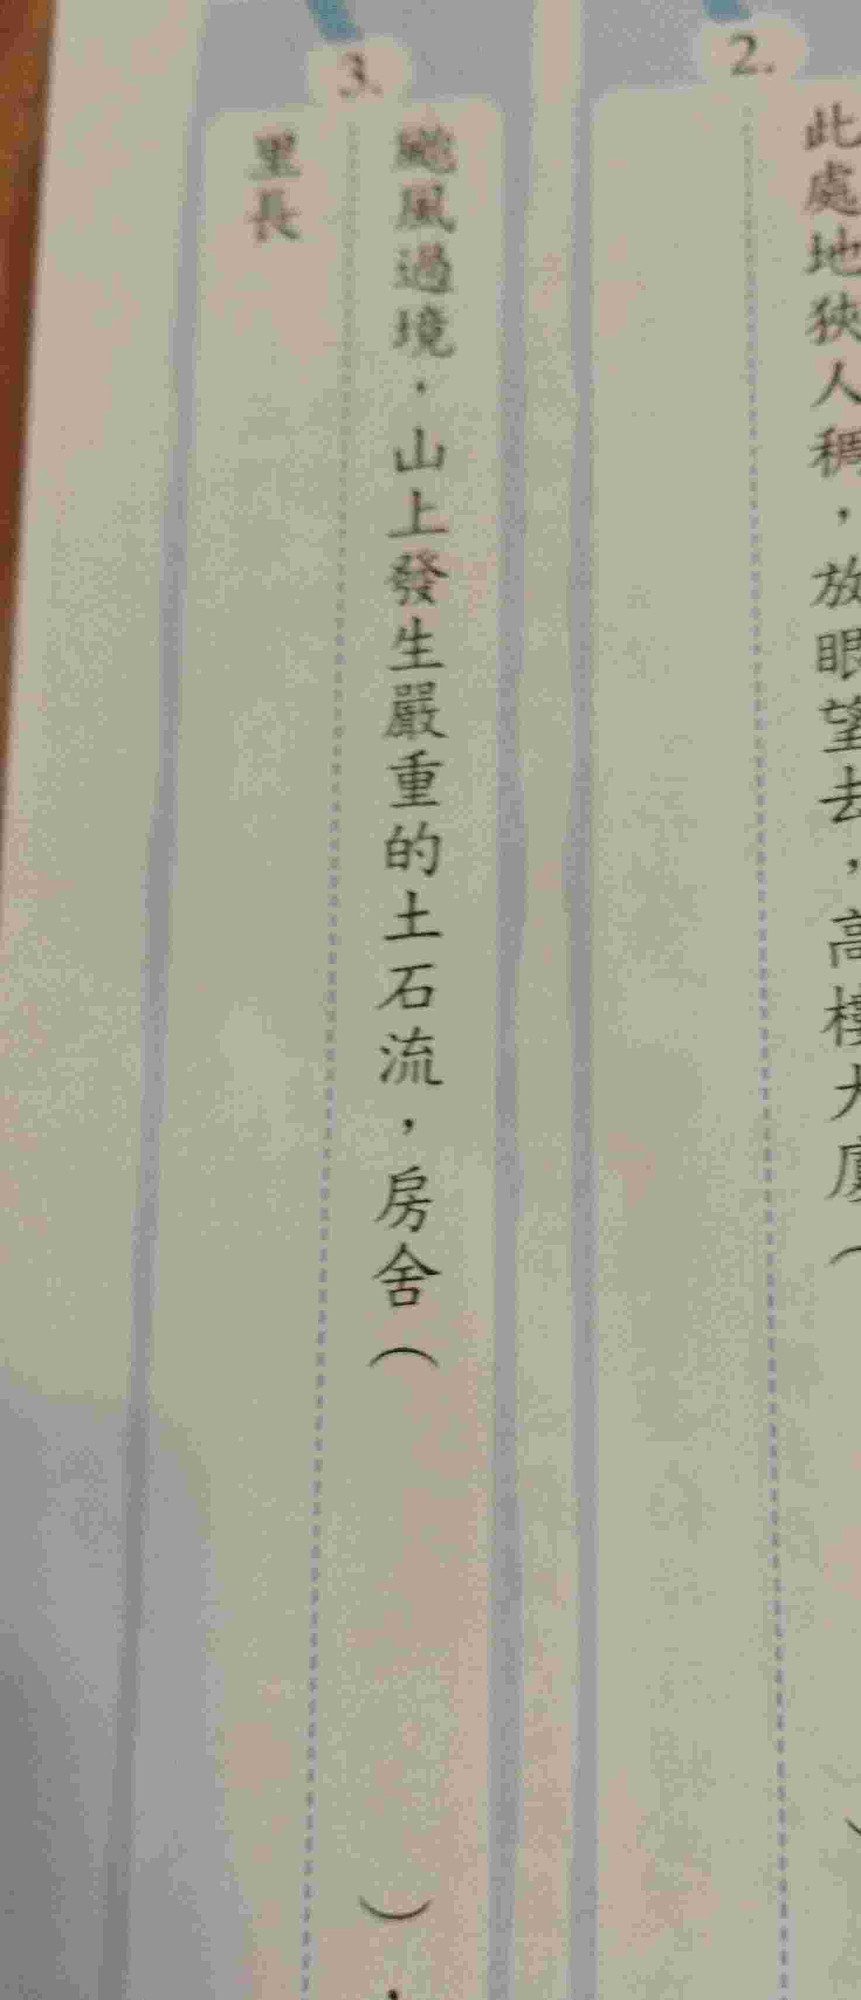 2.
此處地狹人稠，放眼望去，高樓大廈（　）
3.
颱風過境，山上發生嚴重的土石流，房舍（　），
里長